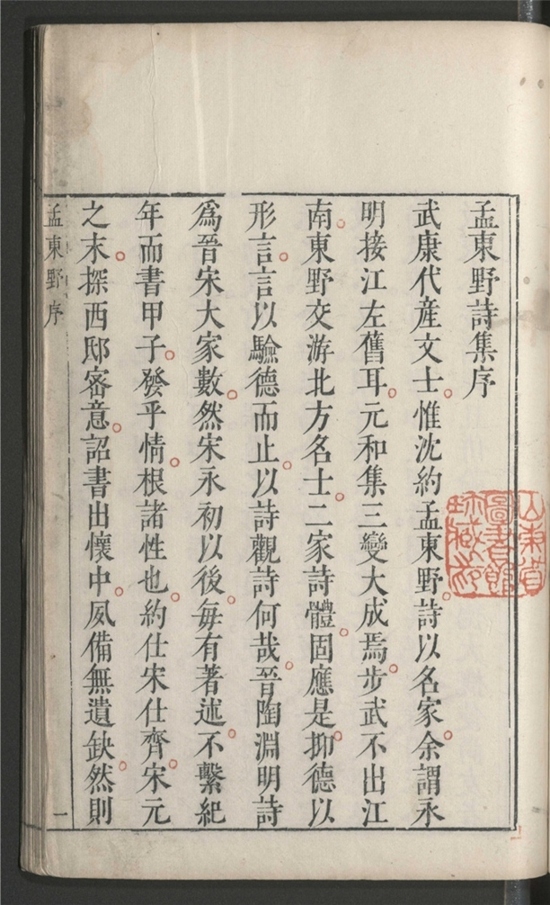 孟東野詩集序
武康代產文士惟沈約孟東野詩以名家余謂永
明接江左舊耳元和集三變大成焉步武不出江
南東野交游北方名士二家詩體固應是抑德以
形言言以驗德而止以詩觀詩何哉晉陶淵明詩
爲晉宋大家數然宋永初以後每有著述不繫紀
年而書甲子發乎情根諸性也約仕宋仕齊宋元
之末探西邸審意詔書出懷中夙備無遺缺然則
孟東野序
一
山東省
圖書館
珍藏印